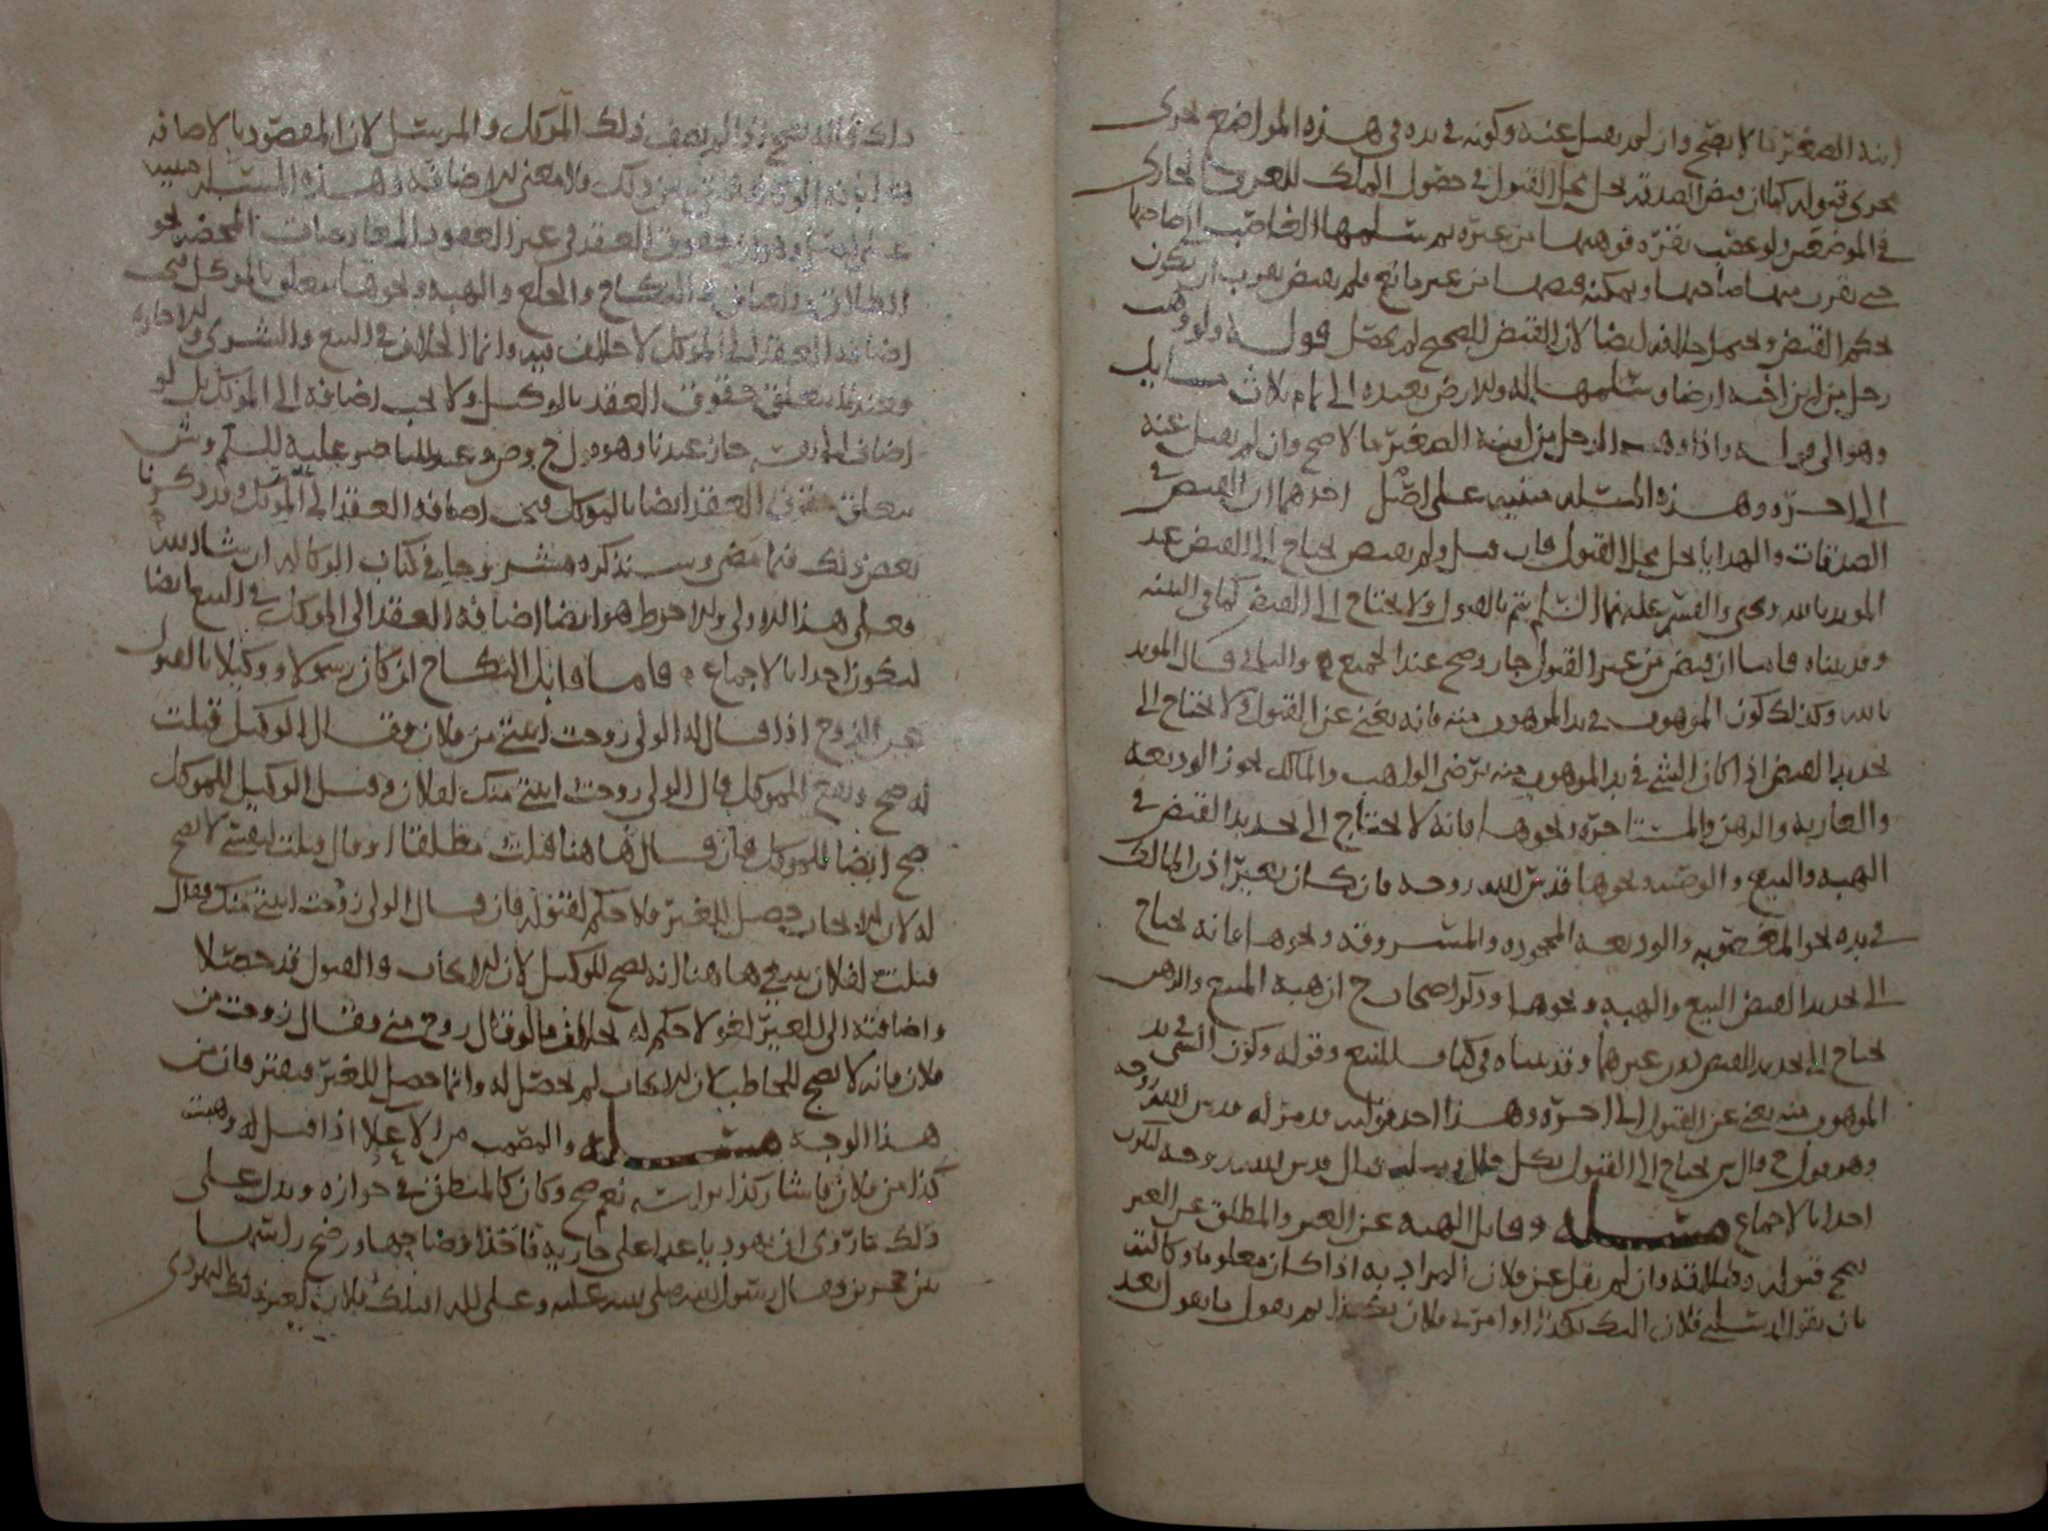 ابنه الصغير ما لا يصح وان لم يقبل عنه وكونه في يده في هذه المواضع يجري
مجرى قبوله كما ان قبض الصدقة يحل محل القبول في حصول الملك للعرف الجاري
في الموضعين ولو غصب بقرة فوهبها من غيره ثم سلمها الغاصب الى صاحبها
حتى تقرب منها صاحبها ويمكنه قبضها من غير مانع فلم يقبض يقرب ان يكون
حكم القبض ويحتمل خلافه ايضا لان القبض الصحيح لم يحصل قوله ولو وهب
رجل من ابن اخيه ارضا وسلمها اليه والارض بعيدة الى تمام ثلاث مسايل
وهو الى قوله واذا وهب الرجل من ابنه الصغير مالا صح وان لم يقبل عنه
الى اخره وهذه المسئلة مبنية على اصل احدهما ان القبض في
الصدقات والهدايا يحل محل القبول فان قبل ولم يقبض يحتاج الى القبض عند
المويد بالله يتم بالقبول ولا يحتاج الى القبض كما في البيع
وقد بيناه فاما ان قبض من غير القبول جاز وصح عند الجميع والثاني قال المويد
بالله وكذلك كون الموهوب في يد الموهوب منه فانه يغني عن القبول ولا يحتاج الى
تجديد القبض اذا كان الشي في يد الموهوب منه برضى الواهب والمالك نحو الوديعة
والعارية والرهن والمستاجرة ونحوها فانه لا يحتاج الى تجديد القبض في
الهبة والبيع والوصية ونحوها قدس الله روحه فان كان بغير اذن المالك
في يده نحو المغصوبة والوديعة المجحودة والمسروقة ونحوها فانه يحتاج
الى تجديد القبض البيع والهبة ونحوها وذكر اصحاب ح ان هبة المبيع والرهن
يحتاج الى تجديد القبض دون غيرهما وقد بيناه في كتاب البيع وقوله وكون الشي في يد
الموهوب منه يغني عن القبول الى اخره وهذا احد قوليه قدس الله روحه
وهو قول ح قال يحتاج الى القبول بكل حال قال قدس الله روحه ليكون
احدا بالاجماع مسئلة وقابل الهبة عن الغير والمطلق عن الغير
يصح قبوله وطلاقه وان لم يقل عن فلان المراد به اذا كان معلوما وكالته
بان يقول ارسلني فلان اليك بكذا او امرني فلان بكذا ثم يقول ما يقول بعد
ذلك فانه يصح اذا لم يضف ذلك الموكل والمرسل لان المقصود بالاضافة
ولا معنى للاضافة وهذه المسئلة مبنية
على اصل وهو ان حقوق العقد في غير العقود المعاوضات المحضة نحو
الطلاق والعتاق والنكاح والخلع والهبة ونحوها يتعلق بالموكل فيجب
اضافة العقد الى الموكل لا خلاف فيه وانما الخلاف في البيع والشرى والاجارة
وعندنا يتعلق حقوق العقد بالوكيل ولا يجب اضافة الى الموكل بل لو
اضاف الى نفسه جاز عندنا وهو قول ح وص وعند الناصر عليه السلم وش
يتعلق حقوق العقد ايضا بالموكل فيجب اضافة العقد الى الموكل وقد ذكرنا
بعض ذلك فيما مضى وسنذكره مشروحا في كتاب الوكالة ان شاء الله
فعلى هذا الاولى والاحوط هو ايضا اضافة العقد الى الموكل في البيع ايضا
ليكون احدا بالاجماع فاما قابل النكاح ان كان رسولا او وكيلا بالقبول
عن الزوج اذا قال له الولي زوجت ابنتي من فلان فقال الوكيل قبلت
له صح ويقع للموكل قال الولي زوجت ابنتي منك لفلان وقبل الوكيل للموكل
صح ايضا للموكل فان قال ها هنا قبلت مطلقا او قال قبلت لنفسي لا يصح
له لان الايجاب حصل للغير فلا حكم لقبوله فان قال الولي زوجت ابنتي منك فقال
قبلت لفلان ينبغي ها هنا انه يصح للوكيل لان الايجاب والقبول قد حصلا
واضافته الى الغير لغو لا حكم له بخلاف ما لو قال زوج مني فقال زوجت من
فلان فانه لا يصح للمخاطب لان الايجاب لم يحصل له وانما حصل للغير فيفترقان من
هذا الوجه مسئلة اذا قيل له وهبت
كذا من فلان فاشار كذا براسه نعم صح وكان كالمنطق في جوازه ويدل على
ذلك ما روي ان يهوديا عدا على جارية فاخذ اوضاحها ورضخ راسها
بين حجرين فقال رسول الله صلى الله عليه وعلى اله اقتلك فلان لغير ذلك اليهودي